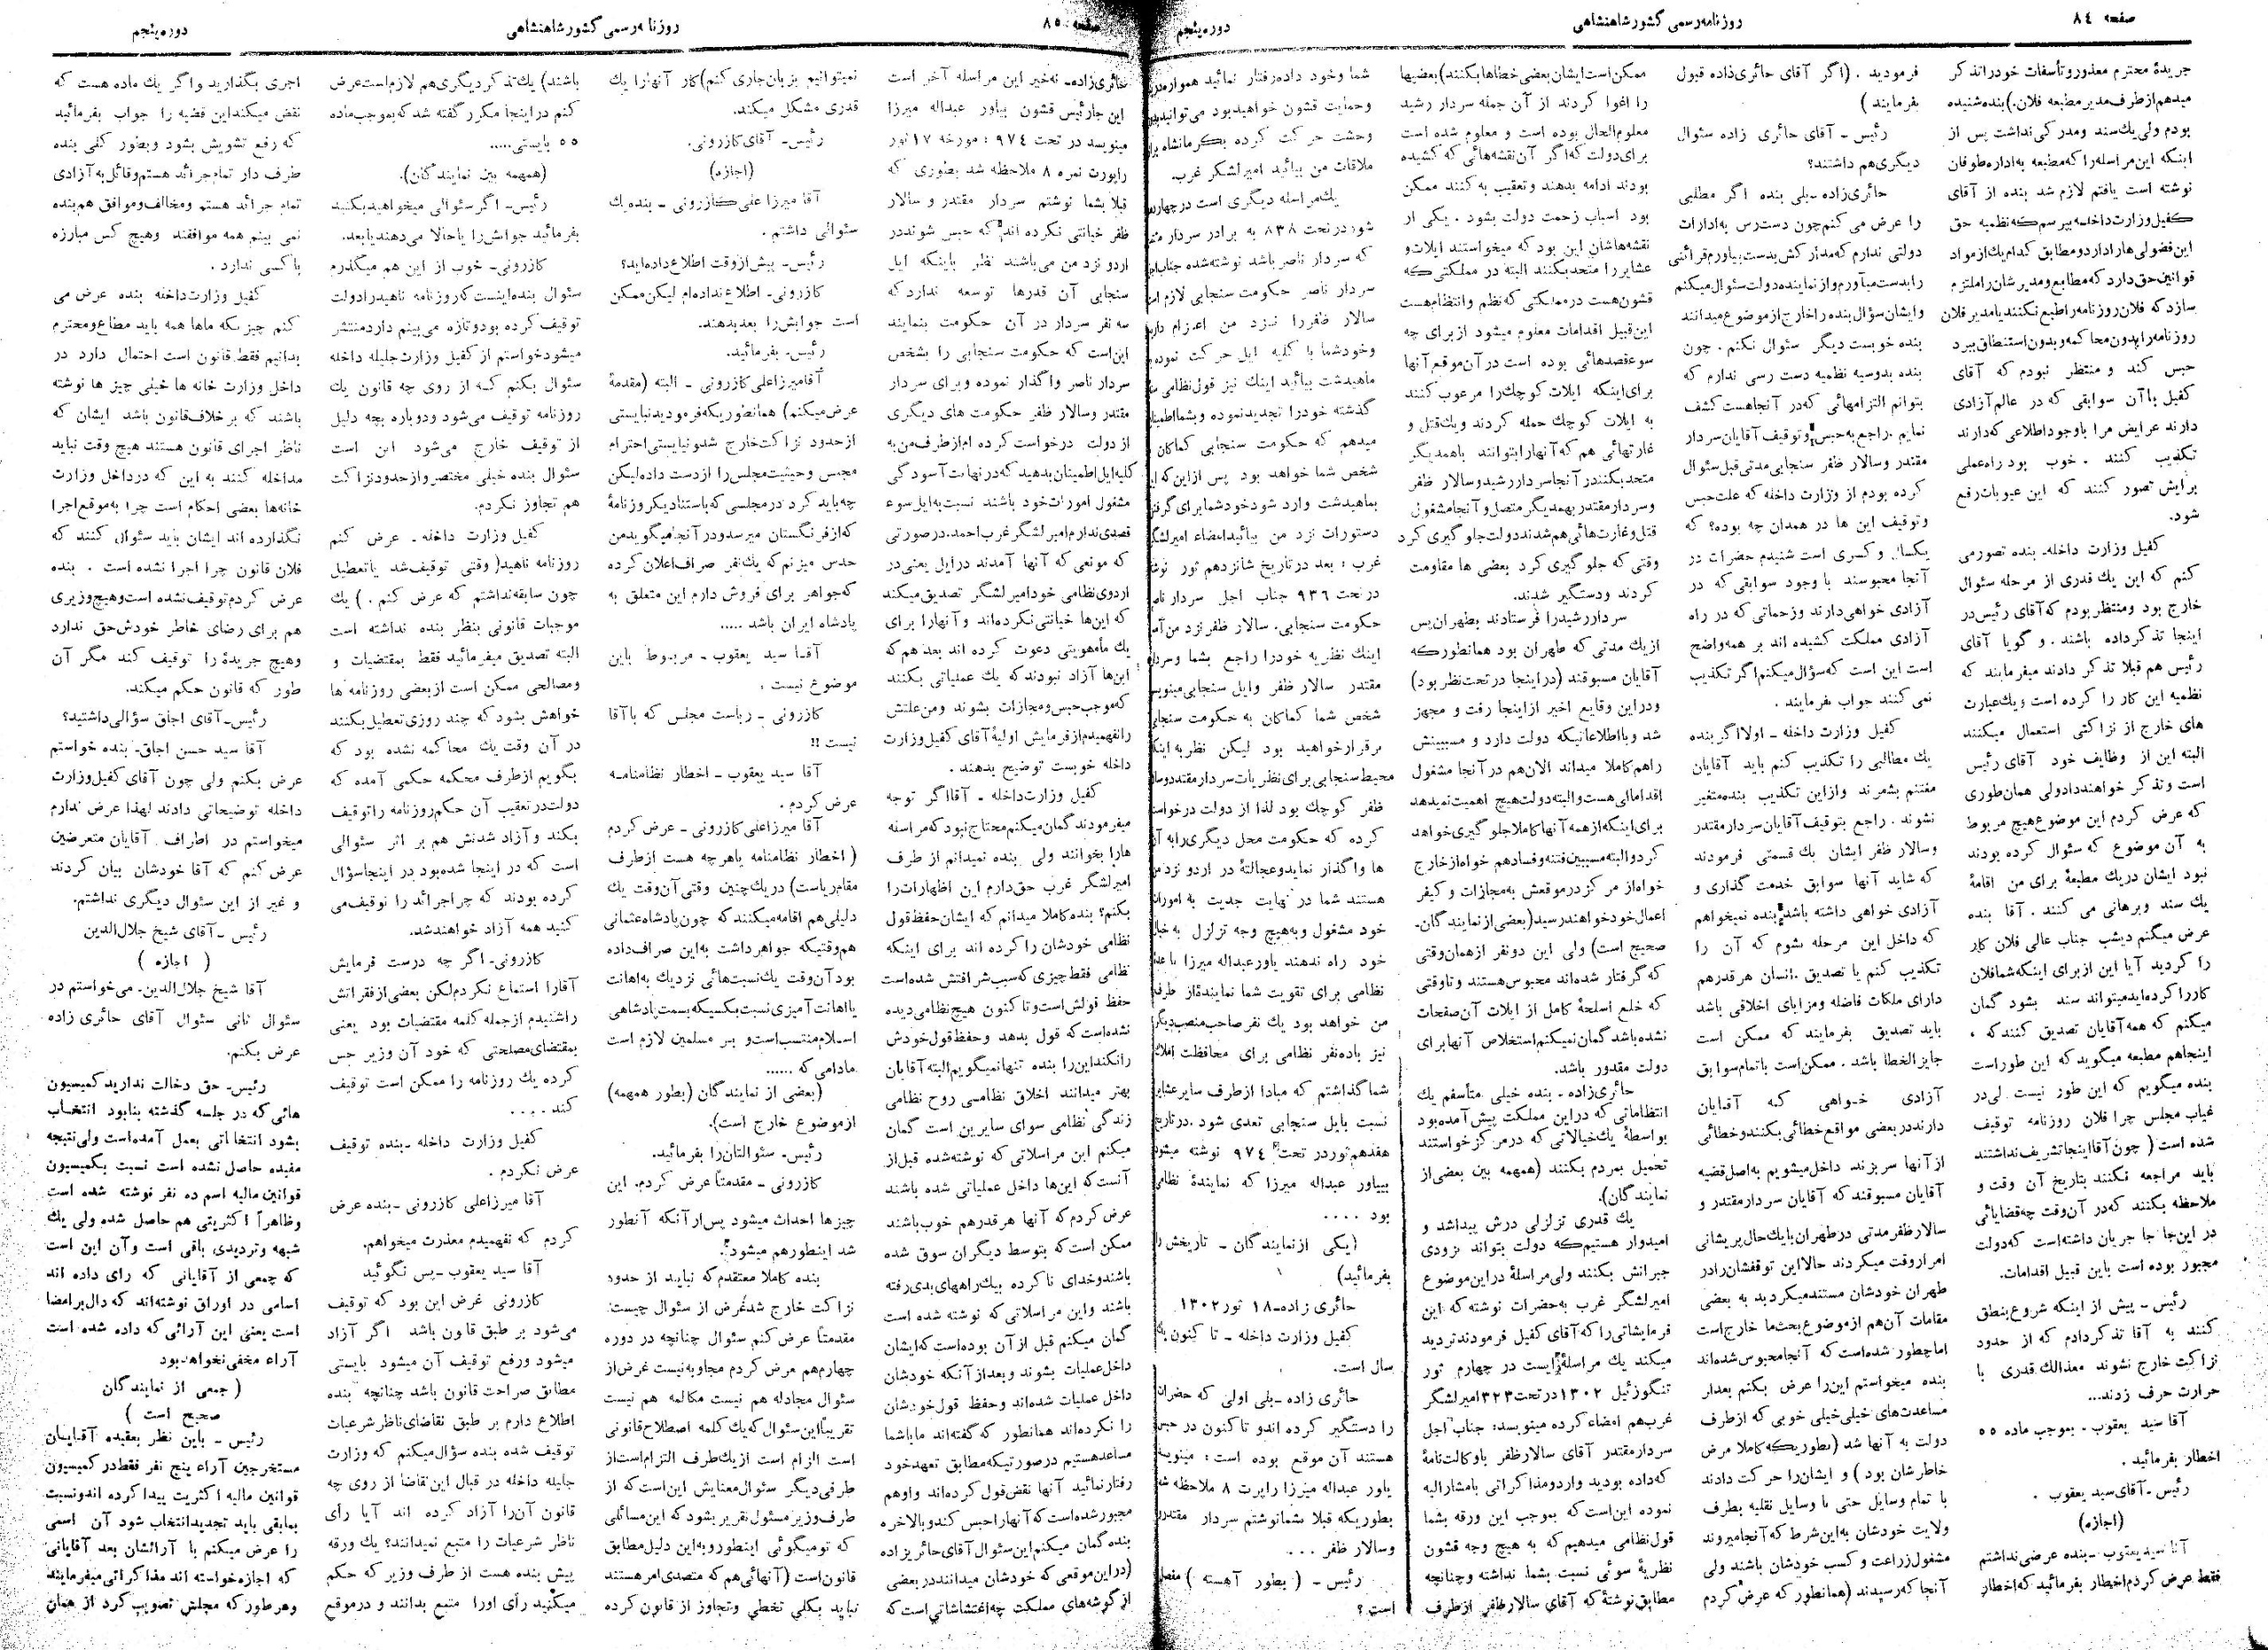 صفحه ۸۴
روزنامه رسمی کشور شاهنشاهی
دوره پنجم
جریدهٔ محترم معذور و تأسفات خود را تذکر
میدهم از طرف مدیر مطبعه فلان.) بنده شنیده
بودم ولی یك سند و مدرکی نداشت پس از
اینکه این مراسله را که مطبعه به اداره طوفان
نوشته است یافتم لازم شد بنده از آقای
کفیل وزارت داخله بپرسم که نظمیه حق
این فضولی ها را دارد و مطابق کدام یك از مواد
قوانین حق دارد که مطابع و مدیرشان را ملتزم
سازد که فلان روزنامه را طبع نکنند یا مدیر فلان
روزنامه را بدون محاکمه و بدون استنطاق ببرد
حبس کند و منتظر نبودم که آقای
کفیل با آن سوابقی که در عالم آزادی
دارند عرایض مرا با وجود اطلاعی که دارند
تکذیب کنند . خوب بود راه عملی
برایش تصور کنند که این عیوبات رفع
شود.
کفیل وزارت داخله - بنده تصور می
کنم که این یك قدری از مرحله سئوال
خارج بود و منتظر بودم که آقای رئیس در
اینجا تذکر داده باشند . و گویا آقای
رئیس هم قبلا تذکر دادند میفرمایند که
نظمیه این کار را کرده است و یك عبارت
های خارج از نزاکتی استعمال میکنند
البته این از وظایف خود آقای رئیس
است و تذکر خواهند داد ولی همان طوری
که عرض کردم این موضوع هیچ مربوط
به آن موضوع که سئوال کرده بودند
نبود ایشان در یك مطبعهٔ برای من اقامهٔ
یك سند و برهانی می کنند . آقا بنده
عرض میکنم دیشب جناب عالی فلان کار
را کردید آیا این از برای اینکه شما فلان
کار را کرده اید میتواند سند بشود گمان
میکنم که همه آقایان تصدیق کنند که ،
اینجا هم مطبعه میگوید که این طور است
بنده میگویم که این طور نیست لی در
غیاب مجلس چرا فلان روزنامه توقیف
شده است ( چون آقا اینجا تشریف نداشتند
باید مراجعه نکنند بتاریخ آن وقت و
ملاحظه بکنند که در آن وقت چه قضایائی
در این جا جا جریان داشته است که دولت
مجبور بوده است باین قبیل اقدامات.
رئیس - پیش از اینکه شروع بنطق
کنند به آقا تذکر دادم که از حدود
نزاکت خارج نشوند معذالك قدری با
حرارت حرف زدند...
آقا سید یعقوب - بموجب ماده ۵۵
اخطار بفرمائید .
رئیس - آقای سید یعقوب .
(اجازه)
آقا سید یعقوب - بنده عرضی نداشتم
فقط عرض کردم اخطار بفرمائید که اخطار
فرمودید . (اگر آقای حائری زاده قبول
بفرمایند )
رئیس - آقای حائری زاده سئوال
دیگری هم داشتند؟
حائری زاده - بلی بنده اگر مطلبی
را عرض می کنم چون دست رس به ادارات
دولتی ندارم که مدارکش بدست بیاورم قرائنی
را بدست میآورم و از نماینده دولت سئوال میکنم
و ایشان سؤال بنده را خارج از موضوع میدانند
بنده خوبست دیگر سئوال نکنم . چون
بنده بدوسیه نظمیه دست رسی ندارم که
بتوانم التزامهائی که در آنجا هست کشف
نمایم . راجع به حبس و توقیف آقایان سردار
مقتدر و سالار ظفر سنجابی مدتی قبل سئوال
کرده بودم از وزارت داخله که علت حبس
و توقیف این ها در همدان چه بوده؟ که
یکسال و کسری است شنیدم حضرات در
آنجا محبوسند با وجود سوابقی که در
آزادی خواهی دارند و زحماتی که در راه
آزادی مملکت کشیده اند بر همه واضح
است این است که سؤال میکنم اگر تکذیب
نمی کنند جواب بفرمایند .
کفیل وزارت داخله - اولا اگر بنده
یك مطالبی را تکذیب کنم باید آقایان
مغتنم بشمرند و از این تکذیب بنده متغیر
نشوند . راجع بتوقیف آقایان سردار مقتدر
و سالار ظفر ایشان یك قسمتی فرمودند
که شاید آنها سوابق خدمت گذاری و
آزادی خواهی داشته باشد بنده نمیخواهم
که داخل این مرحله بشوم که آن را
تکذیب کنم یا تصدیق . انسان هر قدر هم
دارای ملکات فاضله و مزایای اخلاقی باشد
باید تصدیق بفرمایند که ممکن است
جایز الخطا باشد . ممکن است با تمام سوابق
آزادی خواهی که آقایان
دارند در بعضی مواقع خطائی بکنند و خطائی
از آنها سر بزند. داخل میشویم به اصل قضیه
آقایان مسبوقند که آقایان سردار مقتدر و
سالار ظفر مدتی در طهران با یك حال پریشانی
امرار وقت میکردند حالا این توقفشان را در
طهران خودشان مستند میکردید به بعضی
مقامات آن هم از موضوع بحث ما خارج است
اما چطور شده است که آنجا محبوس شده اند
بنده میخواستم این را عرض بکنم بعد از
مساعدت های خیلی خیلی خوبی که از طرف
دولت به آنها شد (بطوریکه کاملا مرض
خاطرشان بود ) و ایشان را حرکت دادند
با تمام وسایل حتی با وسایل نقلیه بطرف
ولایت خودشان به این شرط که آنجا میروند
مشغول زراعت و کسب خودشان باشند ولی
آنجا که رسیدند (همانطور که عرض کردم
ممکن است ایشان بعضی خطاها بکنند) بعضیها
را اغوا کردند از آن جمله سردار رشید
معلوم الحال بوده است و معلوم شده است
برای دولت که اگر آن نقشه هائی که کشیده
بودند ادامه بدهند و تعقیب به کنند ممکن
بود اسباب زحمت دولت بشود . یکی از
نقشه هاشان این بود که میخواستند ایلات و
عشایر را متحد بکنند البته در مملکتی که
قشون هست در مملکتی که نظم و انتظام هست
این قبیل اقدامات معلوم میشود از برای چه
سوء قصدهائی بوده است در آن موقع آنها
برای اینکه ایلات کوچك را مرعوب کنند
به ایلات کوچك حمله کردند و یك قتل و
غارتهائی هم که آنها را بتوانند با همدیگر
متحد بکنند در آنجا سردار رشید و سالار ظفر
و سردار مقتدر بهمدیگر متصل و آنجا مشغول
قتل و غارت هائی هم شدند دولت جلوگیری کرد
وقتی که جلوگیری کرد بعضی ها مقاومت
کردند و دستگیر شدند.
سردار رشید را فرستادند بطهران پس
از یك مدتی که طهران بود همانطور که
آقایان مسبوقند (در اینجا در تحت نظر بود)
و در این وقایع اخیر از اینجا رفت و مجهز
شد و با اطلاعاتیکه دولت دارد و مسببینش
را هم کاملا میداند الان هم در آنجا مشغول
اقداماتی هست و البته دولت هیچ اهمیت نمیدهد
برای اینکه از همه آنها کاملا جلوگیری خواهد
کرد و البته مسببین فتنه و فساد هم خواه از خارج
خواه از مرکز در موقعش به مجازات و کیفر
اعمال خود خواهند رسید (بعضی از نمایندگان -
صحیح است) ولی این دو نفر از همان وقتی
که گرفتار شده اند محبوس هستند و تا وقتی
که خلع اسلحهٔ کامل از ایلات آن صفحات
نشده باشد گمان نمیکنم استخلاص آنها برای
دولت مقدور باشد.
حائری زاده - بنده خیلی متأسفم یك
انتظاماتی که در این مملکت پیش آمده بود
بواسطهٔ یك خیالاتی که در مرکز خواستند
تحمیل بمردم بکنند (همهمه بین بعضی از
نمایندگان).
یك قدری تزلزلی درش پیدا شد و
امیدوار هستیم که دولت بتواند بزودی
جبرانش بکند ولی مراسلهٔ در این موضوع
امیر لشگر غرب به حضرات نوشته که این
فرمایشاتی را که آقای کفیل فرمودند تردید
میکند یك مراسلهٔ ایست در چهارم ثور
تنگوزئیل ۱۳۰۲ در تحت ۳۲۳ امیر لشگر
غرب هم امضاء کرده مینویسد: جناب اجل
سردار مقتدر آقای سالار ظفر با وکالت نامهٔ
که داده بودید وارد و مذاکراتی با مشارالیه
نموده این است که بموجب این ورقه بشما
قول نظامی میدهیم که به هیچ وجه قشون
نظریهٔ سوئی نسبت بشما نداشته و چنانچه
مطابق نوشتهٔ که آقای سالار ظفر از طرف
شما و خود داده رفتار نمائید همواره در
و حمایت قشون خواهید بود می توانید بدون
وحشت حرکت کرده بکرمانشاه برای
ملاقات من بیائید امیر لشگر غرب.
یك مراسله دیگری است در چهارم
ثور در تحت ۸۳۸ به برادر سردار مقتدر
که سردار ناصر باشد نوشته شده جناب اجل
سردار ناصر حکومت سنجابی لازم است
سالار ظفر را نزد من اعزام دارید
و خود شما با کلیه ایل حرکت نموده به
ماهیدشت بیائید اینك نیز قول نظامی
گذشته خود را تجدید نموده و بشما اطمینان
میدهم که حکومت سنجابی کماکان
شخص شما خواهد بود پس از این که ایل
بماهیدشت وارد شود خود شما برای گرفتن
دستورات نزد من بیائید امضاء امیر لشگر
غرب : بعد در تاریخ شانزدهم ثور نوشته
در تحت ۹۳۶ جناب اجل سردار ناصر
حکومت سنجابی . سالار ظفر نزد من آمد
اینك نظریه خود را راجع بشما و سردار
مقتدر سالار ظفر و ایل سنجابی مینویسم
شخص شما کماکان به حکومت سنجابی
برقرار خواهید بود لیکن نظر به اینکه
محیط سنجابی برای نظریات سردار مقتدر و سالار
ظفر کوچك بود لذا از دولت درخواست
کرده که حکومت محل دیگری را به آن
ها واگذار نماید و عجالتهٔ در اردو نزد من
هستند شما در نهایت جدیت به امورات
خود مشغول و به هیچ وجه تزلزل به خیال
خود راه ندهند یاور عبداله میرزا با عده
نظامی برای تقویت شما نمایندهٔ از طرف
من خواهد بود یك نفر صاحب منصب دیگر
نیز با ده نفر نظامی برای محافظت املاك
شما گذاشتم که مبادا از طرف سایر عشایر
نسبت بایل سنجابی تعدی شود . در تاریخ
هفدهم ثور در تحت ۹۷۴ نوشته میشود
بیاور عبداله میرزا که نمایندهٔ نظامی
بود ....
(یکی از نمایندگان - تاریخش را
بفرمائید)
حائری زاده - ۱۸ ثور ۱۳۰۲
کفیل وزارت داخله - تا کنون یك
سال است.
حائری زاده - بلی اولی که حضرات
را دستگیر کرده اند و تا کنون در حبس
هستند آن موقع بوده است : مینویسد
یاور عبداله میرزا راپرت ۸ ملاحظه شد
بطوریکه قبلا بشما نوشتم سردار مقتدر
و سالار ظفر ...
رئیس - ( بطور آهسته ) مفصل
است ؟
صفحه ۸۵
روزنامه رسمی کشور شاهنشاهی
دوره پنجم
حائری زاده - نه خیر این مراسله آخر است
این جا رئیس قشون بیاور عبداله میرزا
مینویسد در تحت ۹۷۴ : مورخه ۱۷ ثور
راپورت نمره ۸ ملاحظه شد بطوری که
قبلا بشما نوشتم سردار مقتدر و سالار
ظفر خیانتی نکرده اند که حبس شوند در
اردو نزد من می باشند نظر باینکه ایل
سنجابی آن قدرها توسعه ندارد که
سه نفر سردار در آن حکومت بنمایند
این است که حکومت سنجابی را بشخص
سردار ناصر واگذار نموده و برای سردار
مقتدر و سالار ظفر حکومت های دیگری
از دولت درخواست کرده ام از طرف من به
کلیه ایل اطمینان بدهید که در نهایت آسودگی
مشغول امورات خود باشند نسبت به ایل سوء
قصدی ندارم امیر لشگر غرب احمد. در صورتی
که موقعی که آنها آمدند در ایل یعنی در
اردوی نظامی خود امیر لشگر تصدیق میکند
که این ها خیانتی نکرده اند و آنها را برای
یك مأموریتی دعوت کرده اند بعد هم که
این ها آزاد نبودند که یك عملیاتی بکنند
که موجب حبس و مجازات بشوند و من علتش
را نفهمیدم از فرمایش اولیهٔ آقای کفیل وزارت
داخله خوبست توضیح بدهند .
کفیل وزارت داخله - آقا اگر توجه
میفرمودند گمان میکنم محتاج نبود که مراسله
ها را بخوانند ولی بنده نمیدانم از طرف
امیر لشگر غرب حق دارم این اظهارات را
بکنم؟ بنده کاملا میدانم که ایشان حفظ قول
نظامی خودشان را کرده اند برای اینکه
نظامی فقط چیزی که سبب شرافتش شده است
حفظ قولش است و تا کنون هیچ نظامی دیده
نشده است که قول بدهد و حفظ قول خودش
را نکند این را بنده تنها نمیگویم البته آقایان
بهتر میدانند اخلاق نظامی روح نظامی
زندگی نظامی سوای سایرین است گمان
میکنم این مراسلاتی که نوشته شده قبل از
آنست که این ها داخل عملیاتی شده باشند
عرض کردم که آنها هر قدر هم خوب باشند
ممکن است که بتوسط دیگران سوق شده
باشند و خدای نا کرده بیك راههای بدی رفته
باشند و این مراسلاتی که نوشته شده است
گمان میکنم قبل از آن بوده است که ایشان
داخل عملیات بشوند و بعد از آنکه خودشان
داخل عملیات شده اند و حفظ قول خودشان
را نکرده اند همانطور که گفته اند ما با شما
مساعد هستیم در صورتیکه مطابق تعهد خود
رفتار نمائید آنها نقض قول کرده اند و او هم
مجبور شده است که آنها را حبس کند و بالاخره
بنده گمان میکنم این سئوال آقای حائریزاده
(در این موقعی که خودشان میدانند در بعضی
از گوشه های مملکت چه اغتشاشاتی است که
نمیتوانیم بزبان جاری کنم) کار آنها را یك
قدری مشکل میکند.
رئیس - آقای کازرونی.
(اجازه)
آقا میرزا علی کازرونی - بنده یك
سئوالی داشتم .
رئیس - پیش از وقت اطلاع داده اید؟
کازرونی - اطلاع نداده ام لیکن ممکن
است جوابش را بعد بدهند.
رئیس - بفرمائید.
آقا میرزا علی کازرونی - البته (مقدمهٔ
عرض میکنم) همانطوریکه فرمودید نبایستی
از حدود نزاکت خارج شد و نبایستی احترام
مجلس و حیثیت مجلس را از دست داد لیکن
چه باید کرد در مجلسی که با ستناد یك روزنامهٔ
که از فرنگستان میرسد و در آنجا میگوید من
حدس میزنم که یك نفر صراف اعلان کرده
که جواهر برای فروش دارم این متعلق به
پادشاه ایران باشد .....
آقا سید یعقوب - مربوط باین
موضوع نیست .
کازرونی - ریاست مجلس که با آقا
نیست !!
آقا سید یعقوب - اخطار نظامنامه
عرض کردم .
آقا میرزا علی کازرونی - عرض کردم
( اخطار نظامنامه یا هر چه هست از طرف
مقام ریاست) در یك چنین وقتی آن وقت یك
دلیلی هم اقامه میکنند که چون پادشاه عثمانی
هم وقتیکه جواهر داشت به این صراف داده
بود آن وقت یك نسبت هائی نزدیك به اهانت
یا اهانت آمیزی نسبت بکسیکه بسمت پادشاهی
اسلام منتسب است و بر مسلمین لازم است
مادامی که ......
(بعضی از نمایندگان (بطور همهمه)
از موضوع خارج است).
رئیس - سئوالتان را بفرمائید.
کازرونی - مقدمتاً عرض کردم. این
چیزها احداث میشود پس از آنکه آنطور
شد اینطور هم میشود.
بنده کاملا معتقدم که نباید از حدود
نزاکت خارج شد غرض از سئوال چیست:
مقدمتاً عرض کنم سئوال چنانچه در دوره
چهارم هم عرض کردم مجاوبه نیست غرض از
سئوال مجادله هم نیست مکالمه هم نیست
تقریباً این سئوال که یك کلمه اصطلاح قانونی
است الزام است از یك طرف التزام است از
طرفی دیگر سئوال معنایش این است که از
طرف وزیر مسئول تقریر بشود که این مسائلی
که تو میگوئی اینطور و به این دلیل مطابق
قانون است (آنهائی هم که متصدی امر هستند
نباید بکلی تخطی و تجاوز از قانون کرده
باشند) یك تذکر دیگری هم لازم است عرض
کنم در اینجا مکرر گفته شد که بموجب ماده
۵۵ بایستی.....
(همهمه بین نمایندگان).
رئیس - اگر سئوالی میخواهید بکنید
بفرمائید جوابش را یا حالا می دهند یا بعد.
کازرونی - خوب از این هم میگذرم
سئوال بنده اینست که روزنامه ناهید را دولت
توقیف کرده بود و تازه می بینم دارد منتشر
میشود خواستم از کفیل وزارت جلیله داخله
سئوال بکنم که از روی چه قانون یك
روزنامه توقیف می شود و دوباره بچه دلیل
از توقیف خارج می شود این است
سئوال بنده خیلی مختصر و از حدود نزاکت
هم تجاوز نکردم.
کفیل وزارت داخله - عرض کنم
روزنامه ناهید ( وقتی توقیف شد یا تعطیل
چون سابقه نداشتم که عرض کنم . ) یك
موجبات قانونی بنظر بنده نداشته است
البته تصدیق میفرمائید فقط بمقتضیات و
ومصالحی ممکن است از بعضی روزنامه ها
خواهش بشود که چند روزی تعطیل بکنند
در آن وقت یك محاکمه نشده بود که
بگویم از طرف محکمه حکمی آمده که
دولت در تعقیب آن حکم روزنامه را توقیف
بکند و آزاد شدنش هم بر اثر سئوالی
است که در اینجا شده بود در اینجا سؤال
کرده بودند که چرا جرائد را توقیف می
کنید همه آزاد خواهند شد.
کازرونی - اگر چه درست فرمایش
آقا را استماع نکردم لکن بعضی از فقراتش
را شنیدم از جمله کلمه مقتضیات بود یعنی
بمقتضای مصلحتی که خود آن وزیر حس
کرده یك روزنامه را ممکن است توقیف
کند ....
کفیل وزارت داخله - بنده توقیف
عرض نکردم .
آقا میرزا علی کازرونی - بنده عرض
کردم که نفهمیدم معذرت میخواهم.
آقا سید یعقوب - پس نگوئید
کازرونی غرض این بود که توقیف
می شود بر طبق قانون باشد اگر آزاد
میشود و رفع توقیف آن میشود بایستی
مطابق صراحت قانون باشد چنانچه بنده
اطلاع دارم بر طبق تقاضای ناظر شرعیات
توقیف شده بنده سؤال میکنم که وزارت
جلیله داخله در قبال این تقاضا از روی چه
قانون آن را آزاد کرده اند آیا رأی
ناظر شرعیات را متبع نمیدانند؟ یك ورقه
پیش بنده هست از طرف وزیر که حکم
میکنید رأی او را متبع بدانند و در موقع
اجری بگذارید و اگر یك ماده هست که
نقض میکند این قضیه را جواب بفرمائید
که رفع تشویش بشود و بطور کلی بنده
طرف دار تمام جرائد هستم و قائل به آزادی
تمام جرائد هستم و مخالف و موافق هم بنده
نمی بینم همه موافقند و هیچ کس مبارزه
با کسی ندارد .
کفیل وزارت داخله بنده عرض می
کنم چیزیکه ماها همه باید مطاع و محترم
بدانیم فقط قانون است احتمال دارد در
داخل وزارت خانه ها خیلی چیز ها نوشته
باشند که بر خلاف قانون باشد ایشان که
ناظر اجرای قانون هستند هیچ وقت نباید
مداخله کنند به این که در داخل وزارت
خانه ها بعضی احکام است چرا به موقع اجرا
نگذارده اند ایشان باید سئوال کنند که
فلان قانون چرا اجرا نشده است . بنده
عرض کردم توقیف نشده است و هیچ وزیری
هم برای رضای خاطر خودش حق ندارد
و هیچ جریدهٔ را توقیف کند مگر آن
طور که قانون حکم میکند.
رئیس - آقای اجاق سؤالی داشتید؟
آقا سید حسن اجاق - بنده خواستم
عرض بکنم ولی چون آقای کفیل وزارت
داخله توضیحاتی دادند لهذا عرض ندارم
میخواستم در اطراف آقایان متعرضین
عرض کنم که آقا خودشان بیان کردند
و غیر از این سئوال دیگری نداشتم.
رئیس - آقای شیخ جلال الدین
( اجازه )
آقا شیخ جلال الدین - می خواستم در
سئوال ثانی سئوال آقای حائری زاده
عرض بکنم.
رئیس - حق دخالت ندارید کمیسیون
هائی که در جلسه گذشته بنا بود انتخاب
بشود انتخاباتی بعمل آمده است ولی نتیجه
مفیده حاصل نشده است نسبت بکمیسیون
قوانین مالیه اسم ده نفر نوشته شده است
و ظاهراً اکثریتی هم حاصل شده ولی یك
شبهه و تردیدی باقی است و آن این است
که جمعی از آقایانی که رای داده اند
اسامی در اوراق نوشته اند که دال بر امضا
است یعنی این آرائی که داده شده است
آراء مخفی نخواهد بود
( جمعی از نمایندگان
صحیح است )
رئیس - باین نظر بعقیده آقایان
مستخرجین آراء پنج نفر فقط در کمیسیون
قوانین مالیه اکثریت پیدا کرده اند و نسبت
بمابقی باید تجدید انتخاب شود آن اسمی
را عرض میکنم با آرائشان بعد آقایانی
که اجازه خواسته اند مذاکراتی میفرمایند
و هر طور که مجلس تصویب کرد از همان